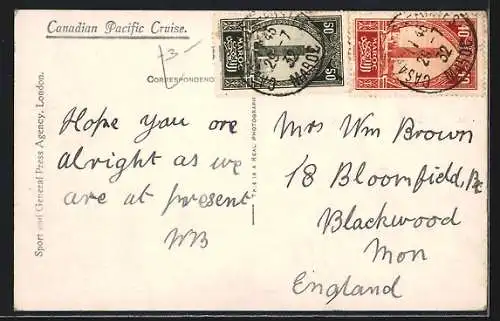 Canadian Pacific Cruise.
3 -
CORRESPONDENC
50
50
MAROC
MAROC
Sport and General Press Agency, London.
THIS IS A REAL PHOTOGRAPH
Hope you are
alright as we
are at present
WB
Mrs Wm Brown
18 Bloomfield,
Blackwood
Mon
England